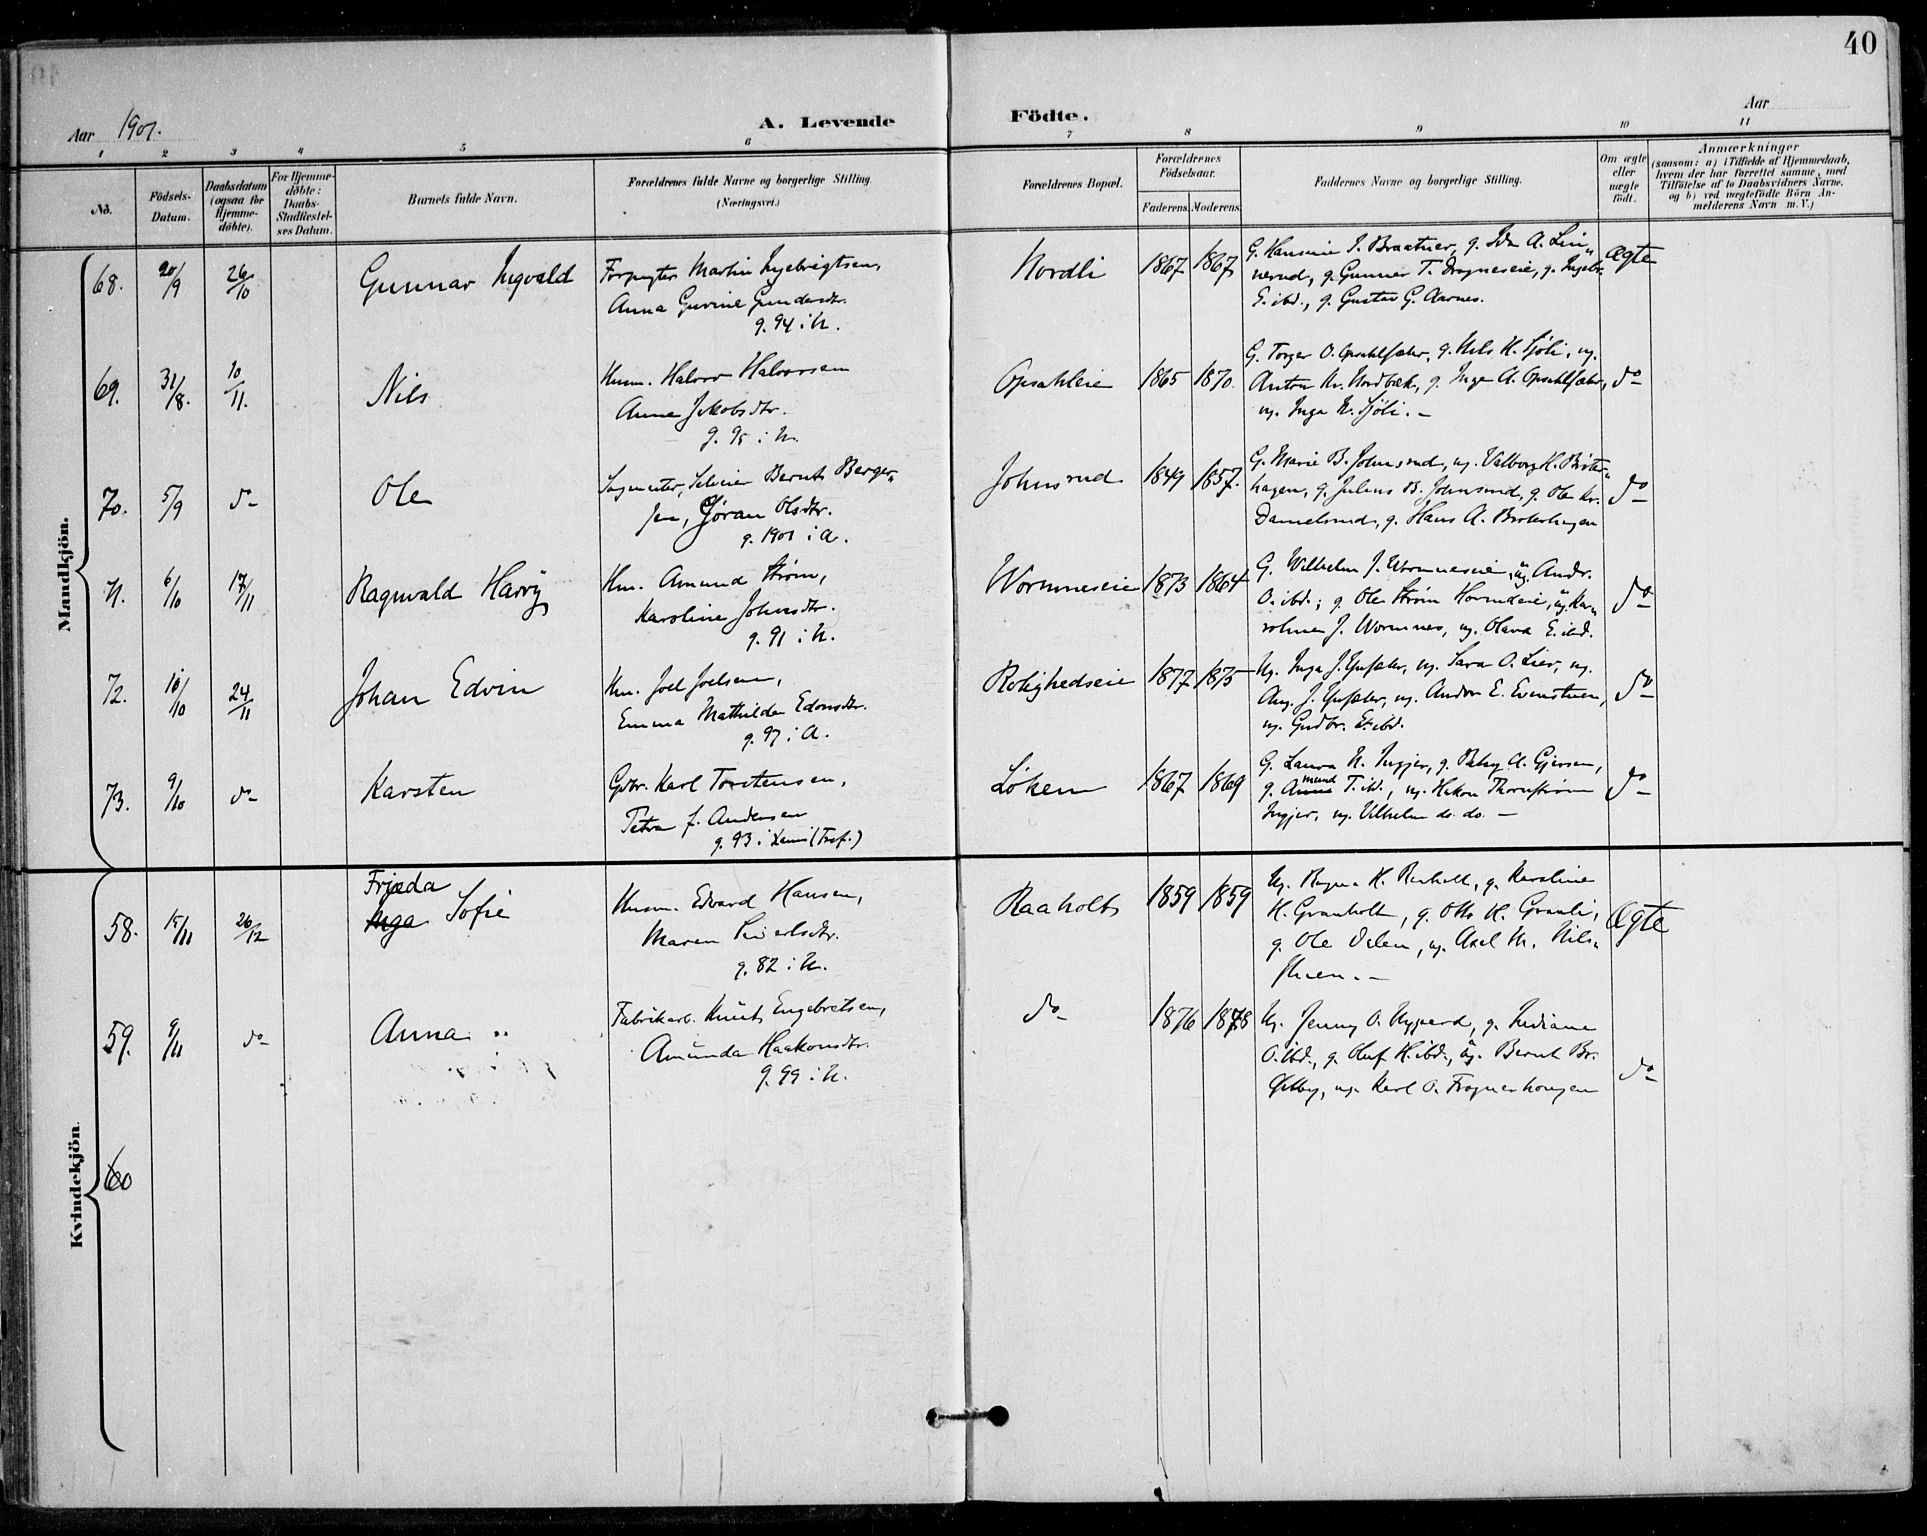 40
Aar 1901.
A. Levende Födte.
Aar
1 2 3 4 5 6 7 8 9 10 11
No.
Födsels-Datum.
Daabsdatum (ogsaa for Hjemme-döbte).
For Hjemme-döbte: Daabs-Stadfæstel-ses Datum.
Barnets fulde Navn.
Forældrenes fulde Navne og borgerlige Stilling. (Næringsvei.)
Forældrenes Bopæl.
Forældrenes Födselsaar.
Faderens. Moderens.
Faddernes Navne og borgerlige Stilling.
Om ægte eller uægte födt.
Anmærkninger
(saasom: a) i Tilfælde af Hjemmedaab,
hvem der har forrettet samme, med
Tilföielse af to Daabsvidners Navne.
og b) ved uægtefödte Börn An-
melderens Navn m. V.)
Mandkjön.
68. 20/9 26/10 Gunnar Ingvald
Forpagter Martin Ingebrigtsen,
Anna Gurine Gundersdtr.
g. 94 i U.
Nordli 1867 1867
G. Hansine I. Braatner, g. Ida A. Lin-
nerud, g. Gunner T. Drogneseie, g. Ingebr.
E. ibd., g. Gustav G. Aarnes.
ægte
69. 31/8. 10/11. Nils
Husm. Halvor Halvorsen
Anne Jakobsdtr.
g. 95 i U.
Opsahleie 1865 1870.
G. Torger O. Opsahlsæter, g. Nils H. Sjöli, ug.
Anton Kr. Nordbæk, g. Inga A. Opsahlsæter,
ug. Inga N. Sjöli. -
do
70. 5/9 do Ole
Sagmester, Selveier Bernt Berger-
sen, Göran Olsdtr.
g. 1901 i A.
Johnsrud 1849 1857.
G. Marie B. Johnsrud, ug. Valborg H. Bröter-
hagen, g. Julius B. Johnsrud, g. Ole Kr.
Danielsrud, g. Hans A. Bröterhagen
do
71. 6/10 17/11 Ragnvald Harry
Hm. Amund Strøm,
Karoline Johnsdtr.
g. 91 i U.
Wormneseie 1873 1864
G. Wilhelm J. Wormneseie, ug. Andr.
O. ibd.; g. Ole Strøm Hovindeie, ug. Ka-
roline J. Wormnes, ug. Olava E. ibd.
do
72. 10/10 24/11 Johan Edvin
Hm. Joel Joelsen,
Emma Mathilde Edvinsdtr.
g. 97 i A.
Rolighedseie 1877 1875
Ug. Inga J. , ug. Sara O. Lier, ug.
Aug. J. , ug. Anders E. Evenstuen,
ug. Gudbr. E. ibd.
do
73. 9/10 do Karsten
Gbr. Karl Torstensen,
Petra f. Andersen
g. 93 i (Tref.)
Löken 1867 1869
G. Laura N. Ingjer, g. A. Gjersøe,
g. Amund T. ibd., ug. Hakon Thornstrøm
Ingjer, ug. Vilhelm do. do. -
do
Kvindekjön.
58. 15/11 26/12 Frjeda
Inga Sofie
Husm. Edvard Hansen,
Maren Sivertsdtr.
g. 82 i U.
Raaholt 1859 1859
Ug. Ragna H. Raaholt, g. Karoline
H. Granholt, g. Otto H. Granli,
g. Ole Dalen, ug. Axel M. Nils-
stuen. -
ægte
59. 9/11 do Anna
Fabrikarb. Knut Engebretsen,
Amunda Haakonsdtr.
g. 99 i U.
do 1876 1878
Ug. Jenny O. Nygaard, g. Indiana
O. ibd., g. Oluf H. ibd., ug. Bernt Br.
Østby, ug. Karl O. Frognerhougen
do
60